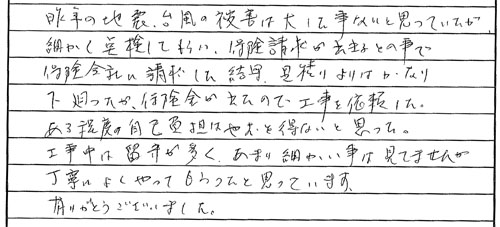 昨年の地震、台風の被害は大した事ないと思っていたが
細かく点検してもらい、保険請求が出来るとの事で
保険会社に請求した結果、見積りよりはかなり
下回ったが、保険金が出たので工事を依頼した。
ある程度の自己負担はやむを得ないと思った。
工事中は留守が多く、あまり細かい事は見てませんが
丁寧によくやってもらったと思っています。
ありがとうございました。